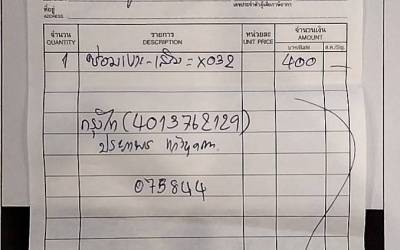 ที่อยู่
ADDRESS
เลขประจำตัวผู้เสียภาษีอากร
จำนวน รายการ หน่วยละ จำนวนเงิน
QUANTITY DESCRIPTION UNIT PRICE AMOUNT
1 ซ่อมเบาะ - = X032 400 —
กรุงไทย (4013762129)
ประภาพร
075844